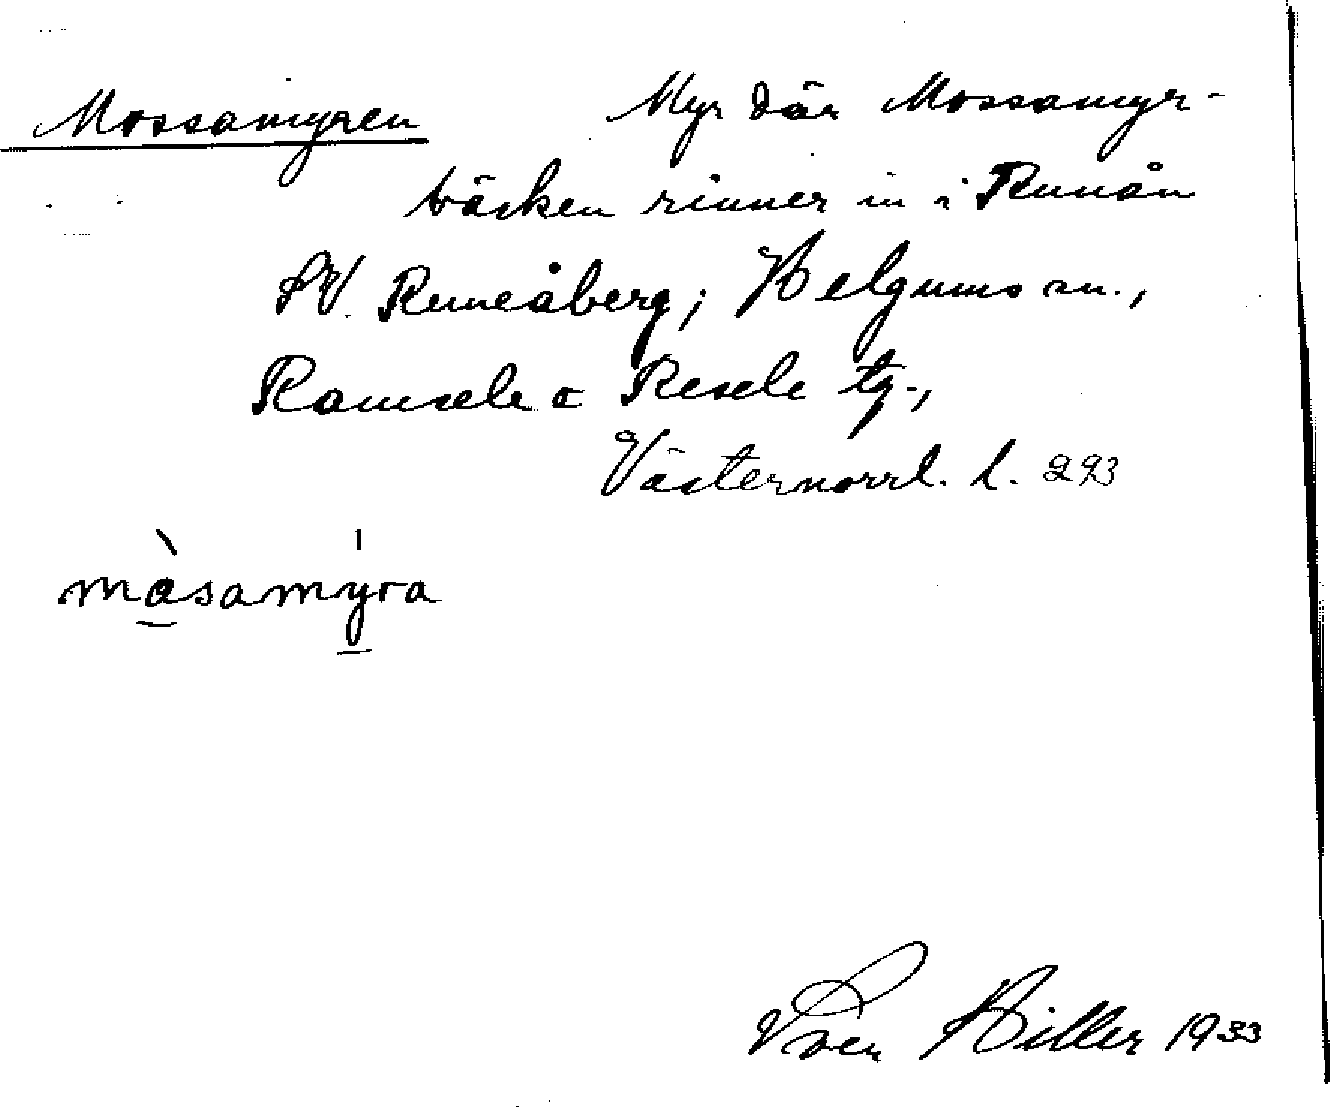 Mossamyren Myr där Mossamyr-
bäcken rinner in i Runån
SV. Runeåberg; Helgums sn.,
Ramsele o Resele tg.,
Västernorrl. l. 293
måsamýra
Sven Hiller 1933